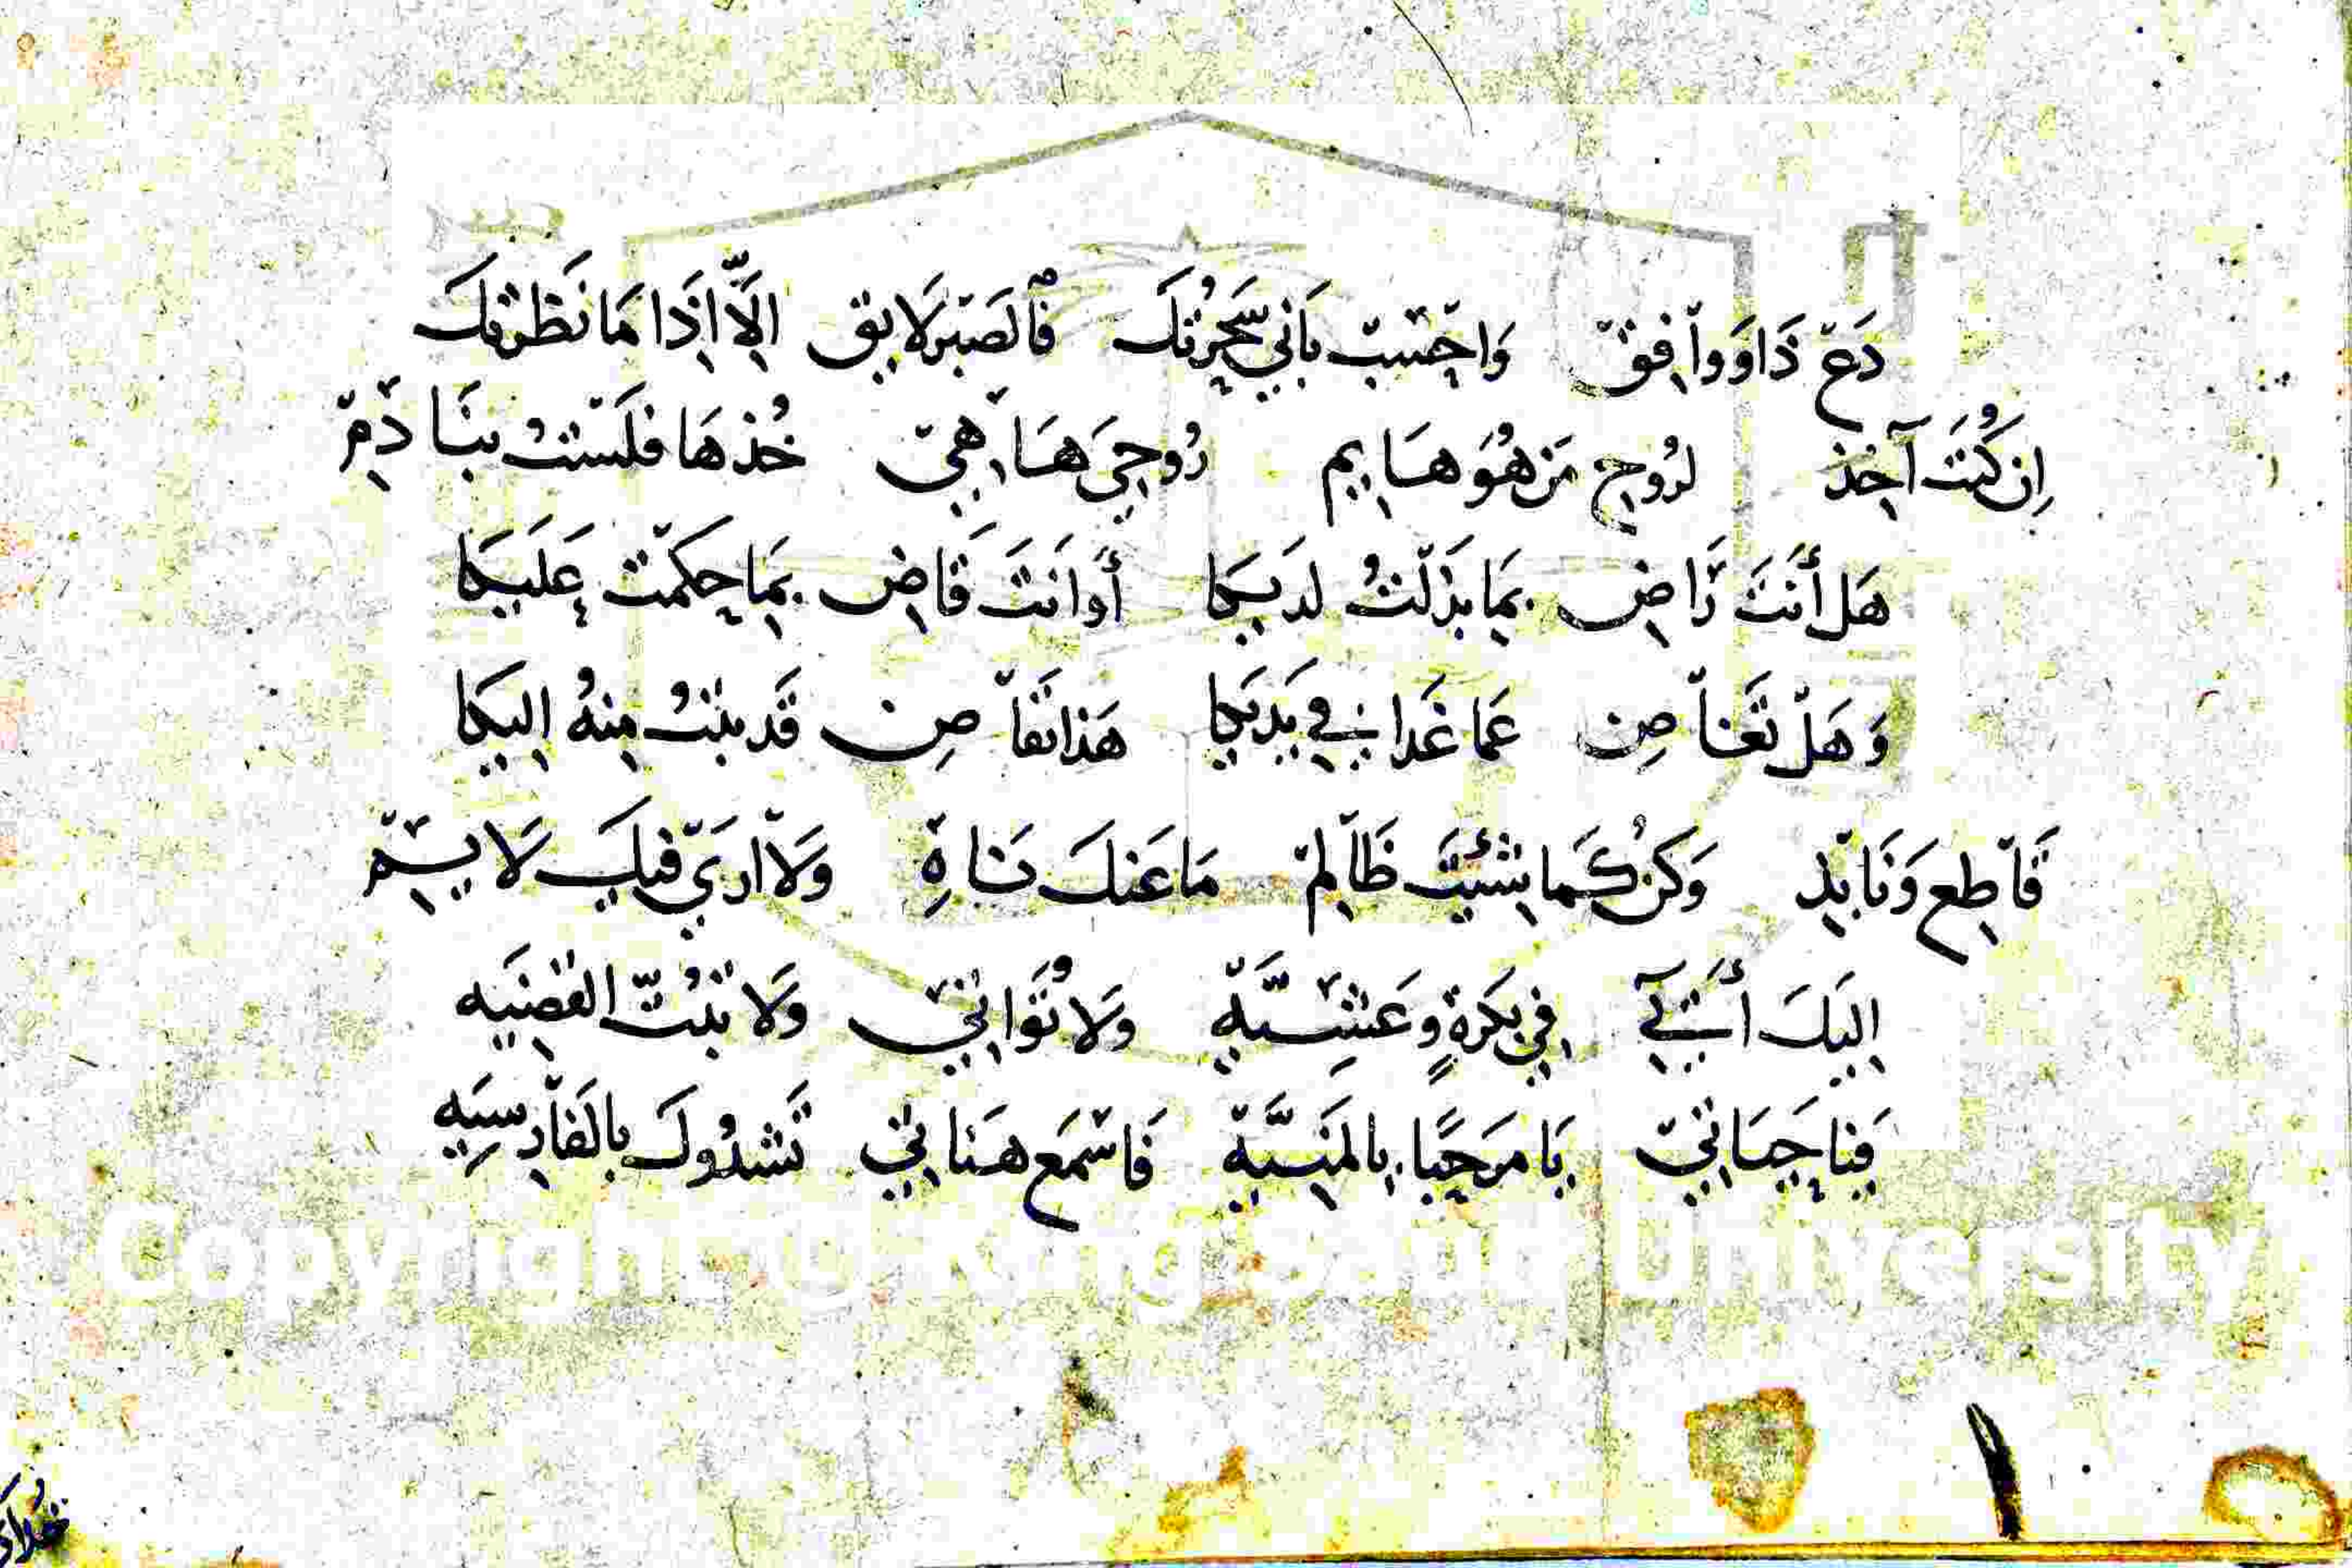 دَعْ ذَا وَوَافِقْ وَاحْسِبْ بَاني سَحِرْتك فَالصَبر لَايق اِلَّا اِذَا مَا نَظرتكَ
اِن كُنتَ آخِذ لرُوحِ مَن هُوَ هَايم رُوحِي هَا هِيْ خُذهَا فلَسْتُ بنَادِمْ
هَل أنتَ رَاضِ بِمَا بذَلتُ لدَيكا أوانتَ قَاضِ بِمَا حكمْت عَلَيكا
وَهَلْ تغَنَا صِن عَمَا غَدا فِي يَدَيكا هَذا تقَا صِن قَد بنتُ مِنهُ اليكا
فَاطِع وَنَابِذ وَكن كَما شئتَ ظَالِمْ مَا عَنكَ نَاهِ وَلَا ارَيْ فيكَ لَايِمْ
اليَكَ أشتَكي فِي بَكرَةٍ وعَشيَّة وَلَا تُوَانِي وَلَا تبُتّ القضِيَه
فيَا حَيَاتِي يَا مرَحبًا بالمَنيَّة فَاسْمَع هَنَاني تَشدُوكَ بِالفَارِسِيَه
Copyright © King Saud University
١